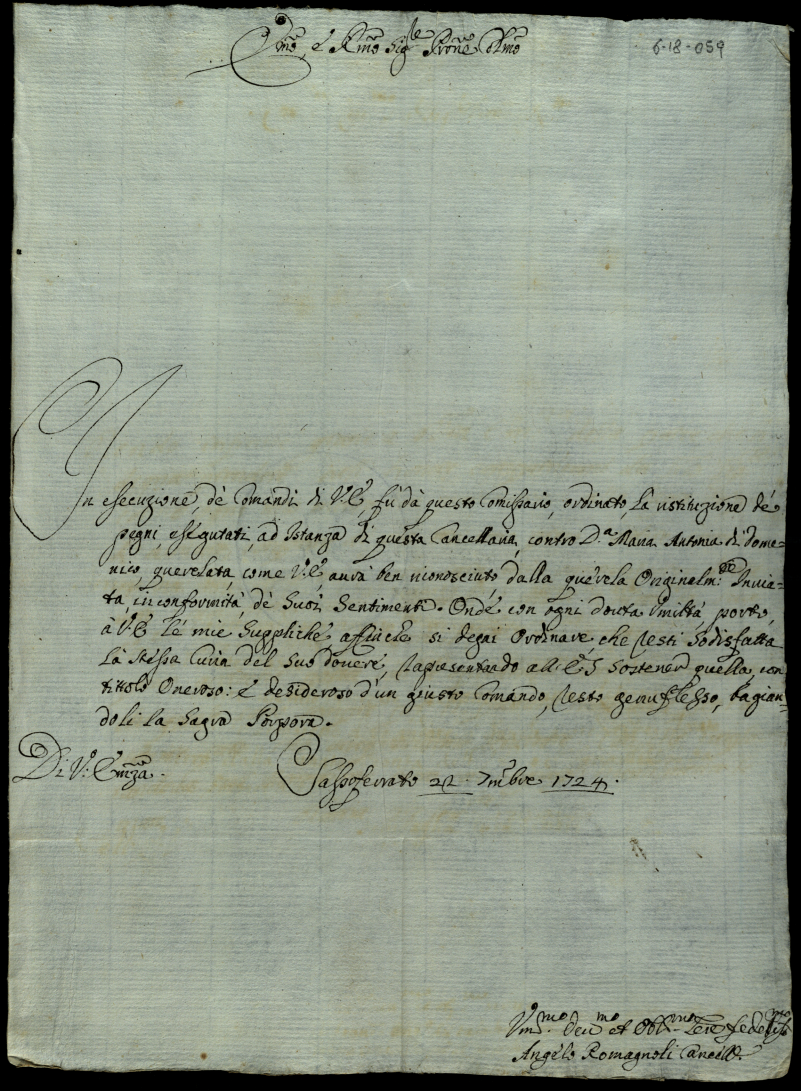 Emo, e Rmo Sigre Prone Colmo
6-18-059
In esecuzione de Comandi di V.E. fù dà questo Comissario, ordinato, la ristituzione dé
pegni, esegutati, ad Istanza di questa Cancellaria, contro D.a Maria Antonia di Dome-
nico, querelata, come V.E. aurà ben riconosciuto dalla querela Originalm:te Invia-
ta, in conformità, dè Suoi Sentimenti. Onde con ogni douta Umiltà, porto,
à V.E. le mie Suppliche affinche si degni Ordinare, che resti Sodisfatta
la stessa Curia del Suo douere, rapresentando all'E.S. Sostener quella, con
titolo Oneroso: e desideroso d'un giusto Comando, resto genuflesso, bagian-
doli la Sagra Porpora.
Di V. Emza.
Sassoferrato 22. 7mbre 1724.
Vmo deumo et Obl.mo Sere fedelis.mo
Angelo Romagnoli Cancell.e